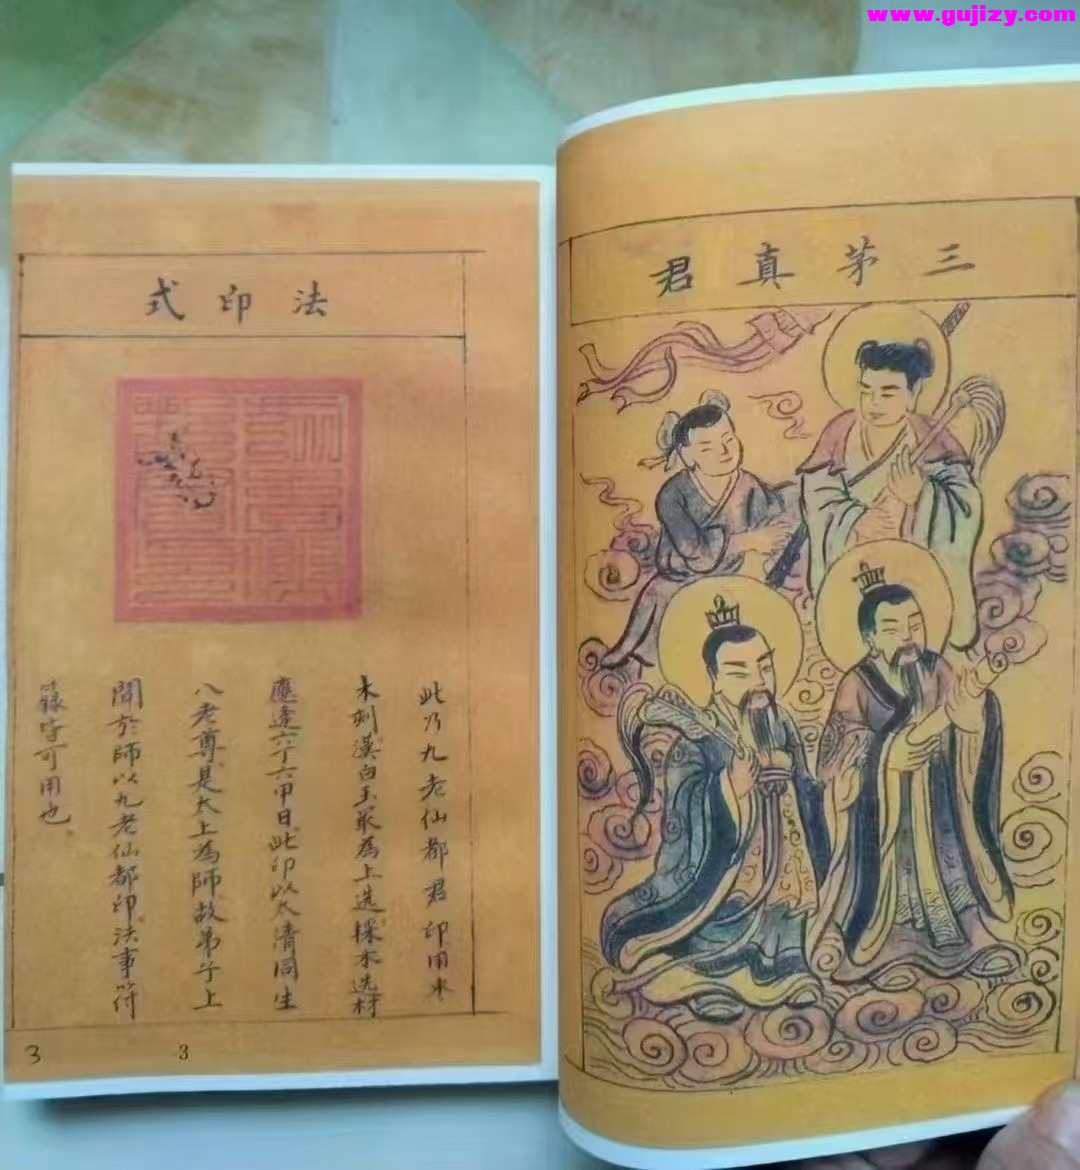 www.gujizy.com
三茅真君
法印式
此乃九老仙都君印用
木刻漢白玉最為上选採木选材
應逢六丁六甲日此印以太清同生
八老尊是太上為師故弟子上
聞於師以九老仙都印法事符
籙皆可用也。
3
3